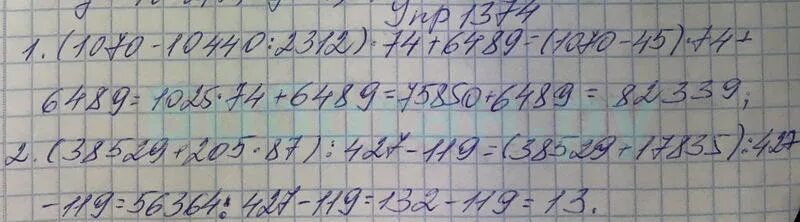 Упр 1374
1. (1070-10440:2312)·74+6489=(1070-45)·74+
6489=1025·74+6489=75850+6489= 82339;
2. (38529+205·87):427-119=(38529+17835):427
-119=56364:427-119=132-119=13.